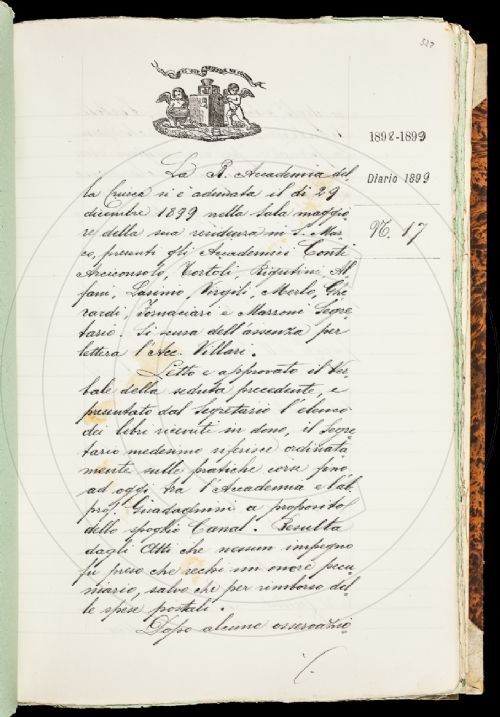 323
1898-1899
Diario 1899
N. 17
La R. Accademia del
la Crusca si è adunata il dì 29
dicembre 1899 nella sala maggio
re della sua residenza in S. Mar
co, presenti gli Accademici Conti
Arciconsolo, Tortoli, Rigutini, Al
fani, Lasinio, Virgili, Merlo, Ghe
rardi, Fornaciari e Mazzoni Segre
tario. Si scusa dell'assenza per
lettera l'Acc. Villari.
Letto e approvato il Ver
bale della seduta precedente, e
presentato dal Segretario l'elenco
dei libri ricevuti in dono, il Segre
tario medesimo riferisce ordinata
mente sulle pratiche corse fino
ad oggi tra l'Accademia e l'ab.
prof. Guadagnini a proposito
dello spoglio Canal. Resulta
dagli Atti che nessun impegno
fu preso che rechi un onere pecu
niario, salvo che per rimborso del
le spese postali.
Dopo alcune osservazio